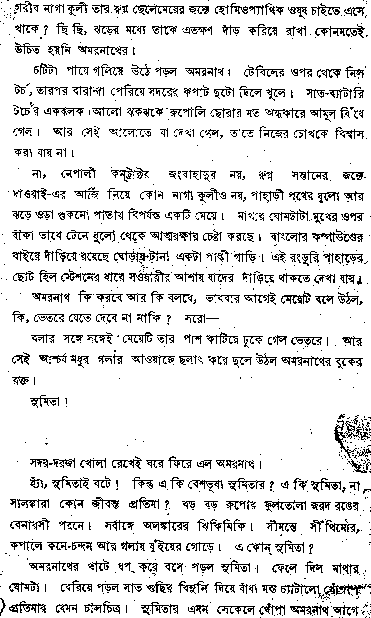 গরীব নাগা কুলী তার রুগ্ন ছেলেমেয়ের জন্যে হোমিওপ্যাথিক ওষুধ চাইতে এসে
থাকে? ছি ছি, ঝড়ের মধ্যে তাকে এতক্ষণ দাঁড় করিয়ে রাখা কোনমতেই
উচিত হয়নি অমরনাথের।
চটিটা পায়ে গলিয়ে উঠে পড়ল অমরনাথ। টেবিলের ওপর থেকে নিল
টর্চ, তারপর বারান্দা পেরিয়ে সদরের কপাট দুটো দিলে খুলে। সাত-ব্যাটারি
টর্চের একঝলক আলো ঝকঝকে রূপোলি ছোরার মত অন্ধকারে আমূল বিঁধে
গেল। আর সেই আলোতে যা দেখা গেল, তাতে নিজের চোখকে বিশ্বাস
করা যায় না।
না, নেপালী কনট্রাক্টর জংবাহাদুর নয়, রুগ্ন সন্তানের জন্যে
দাওয়াই-এর আর্জি নিয়ে কোন নাগা কুলীও নয়, পাহাড়ী পথের ধুলো আর
ঝড়ে ওড়া শুকনো পাতায় বিপর্যস্ত একটি মেয়ে। মাথার ঘোমটাটা মুখের ওপর
বাঁকা ভাবে টেনে ধুলো থেকে আত্মরক্ষার চেষ্টা করছে। বাংলোর কম্পাউণ্ডের
বাইরে দাঁড়িয়ে রয়েছে ঘোড়ায়-টানা একটা গাড়ী গাড়ি। এই রংডুরি পাহাড়ের
ছোট হিল স্টেশনের ধারে সওয়ারীর আশায় যাদের দাঁড়িয়ে থাকতে দেখা যায়।
অমরনাথ কি করবে আর কি বলবে, ভাববার আগেই মেয়েটি বলে উঠল,
কি, ভেতরে যেতে দেবে না নাকি? সরো—
বলার সঙ্গে সঙ্গেই মেয়েটি তার পাশ কাটিয়ে ঢুকে গেল ভেতরে। আর
সেই আশ্চর্য মধুর গলার আওয়াজে ছলাৎ করে দুলে উঠল অমরনাথের বুকের
রক্ত।
সুমিতা!
সদর-দরজা খোলা রেখেই ঘরে ফিরে এল অমরনাথ।
হ্যাঁ, সুমিতাই বটে! কিন্তু এ কি বেশভূষা সুমিতার? এ কি সুমিতা, না
সালঙ্কারা কোন জীবন্ত প্রতিমা? বড় বড় রূপোর ফুলতোলা জরদ রঙের
বেনারসী পরনে। সর্বাঙ্গে অলঙ্কারের ঝিকিমিকি। সীমন্তে সীঁথিমৌর,
কপালে কনে-চন্দন আর গলায় যুঁইয়ের গোড়ে। এ কোন্ সুমিতা?
অমরনাথের খাটে ধপ করে বসে পড়ল সুমিতা। ফেলে দিল মাথার
ঘোমটা। বেরিয়ে পড়ল সাত গুছির বিনুনি দিয়ে বাঁধা মস্ত চ্যাটালো খোঁপা
প্রতিমার যেমন চালচিত্র। সুমিতার এমন সেকেলে খোঁপা অমরনাথ আগে